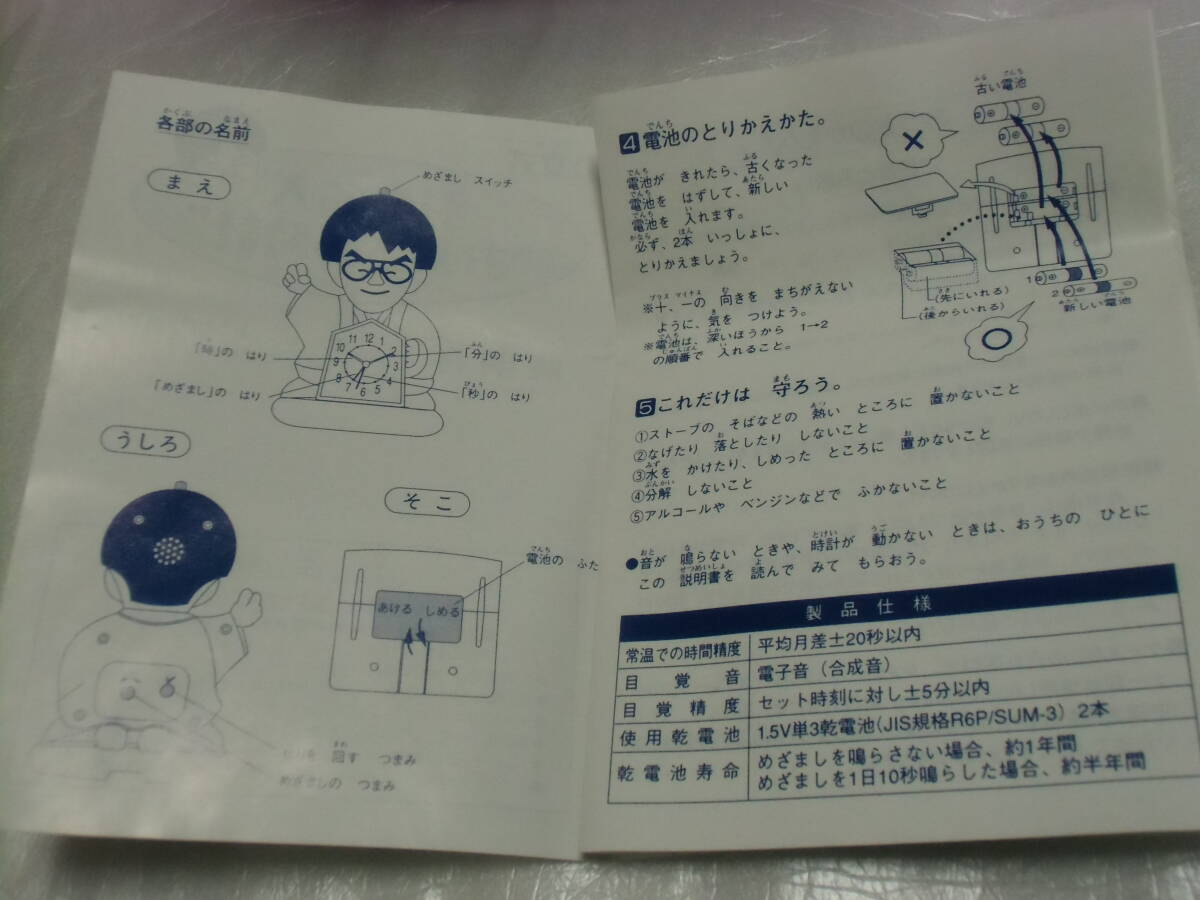 各部の名前
まえ
めざまし スイッチ
10 11 12 1 2 3 4 5 6 7 8 9
「時」の はり
「分」の はり
「めざまし」の はり
「秒」の はり
うしろ
そこ
電池の ふた
あける しめる
回す つまみ
めざましの つまみ
4 電池のとりかえかた。
電池が きれたら、古くなった
電池を はずして、新しい
電池を 入れます。
必ず、2本 いっしょに、
とりかえましょう。
※＋、－の 向きを まちがえない
ように、気を つけよう。
※電池は、深いほうから 1→2
の順番で 入れること。
古い電池
(先にいれる)
(後からいれる)
1
2
新しい電池
5 これだけは 守ろう。
①ストーブの そばなどの 熱い ところに 置かないこと
②なげたり 落としたり しないこと
③水を かけたり、しめった ところに 置かないこと
④分解 しないこと
⑤アルコールや ベンジンなどで ふかないこと
●音が 鳴らない ときや、時計が 動かない ときは、おうちの ひとに
この 説明書を 読んで みて もらおう。
製品仕様
常温での時間精度 平均月差±20秒以内
目覚音 電子音（合成音）
目覚精度 セット時刻に対し±5分以内
使用乾電池 1.5V単3乾電池(JIS規格R6P/SUM-3) 2本
乾電池寿命 めざましを鳴らさない場合、約1年間
めざましを1日10秒鳴らした場合、約半年間